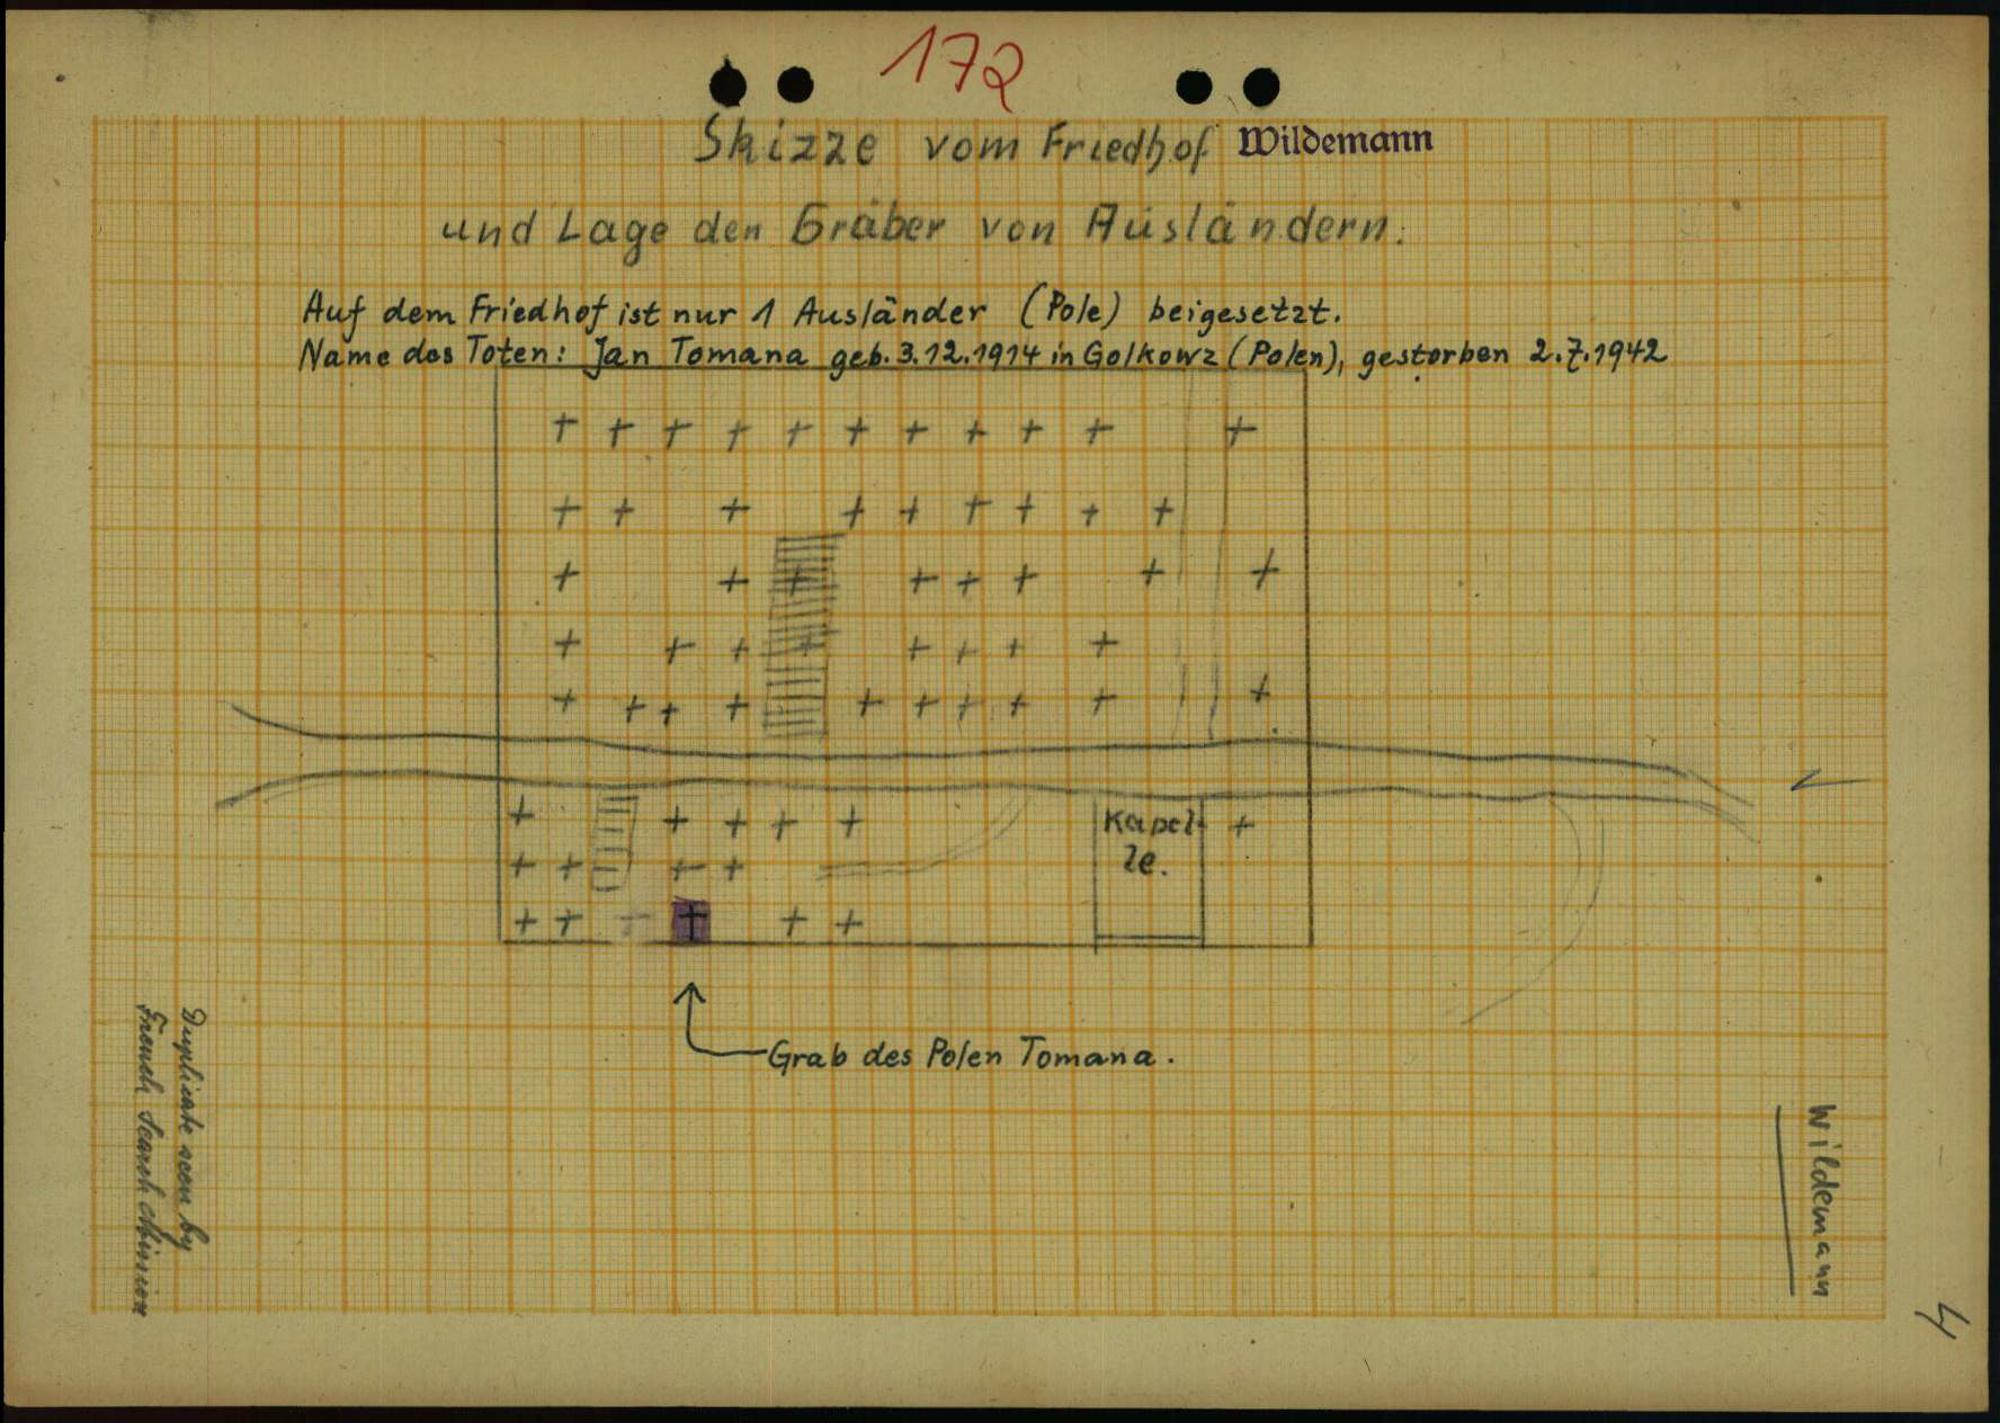 172
Skizze vom Friedhof Wildemann
und Lage den Gräber von Ausländern.
Auf dem Friedhof ist nur 1 Ausländer (Pole) beigesetzt.
Name des Toten: Jan Tomana geb. 3.12.1914 in Golkowz (Polen), gestorben 2.7.1942
Kapel-
le.
Grab des Polen Tomana.
Duplicate seen by
French Search Mission
Wildemann
4